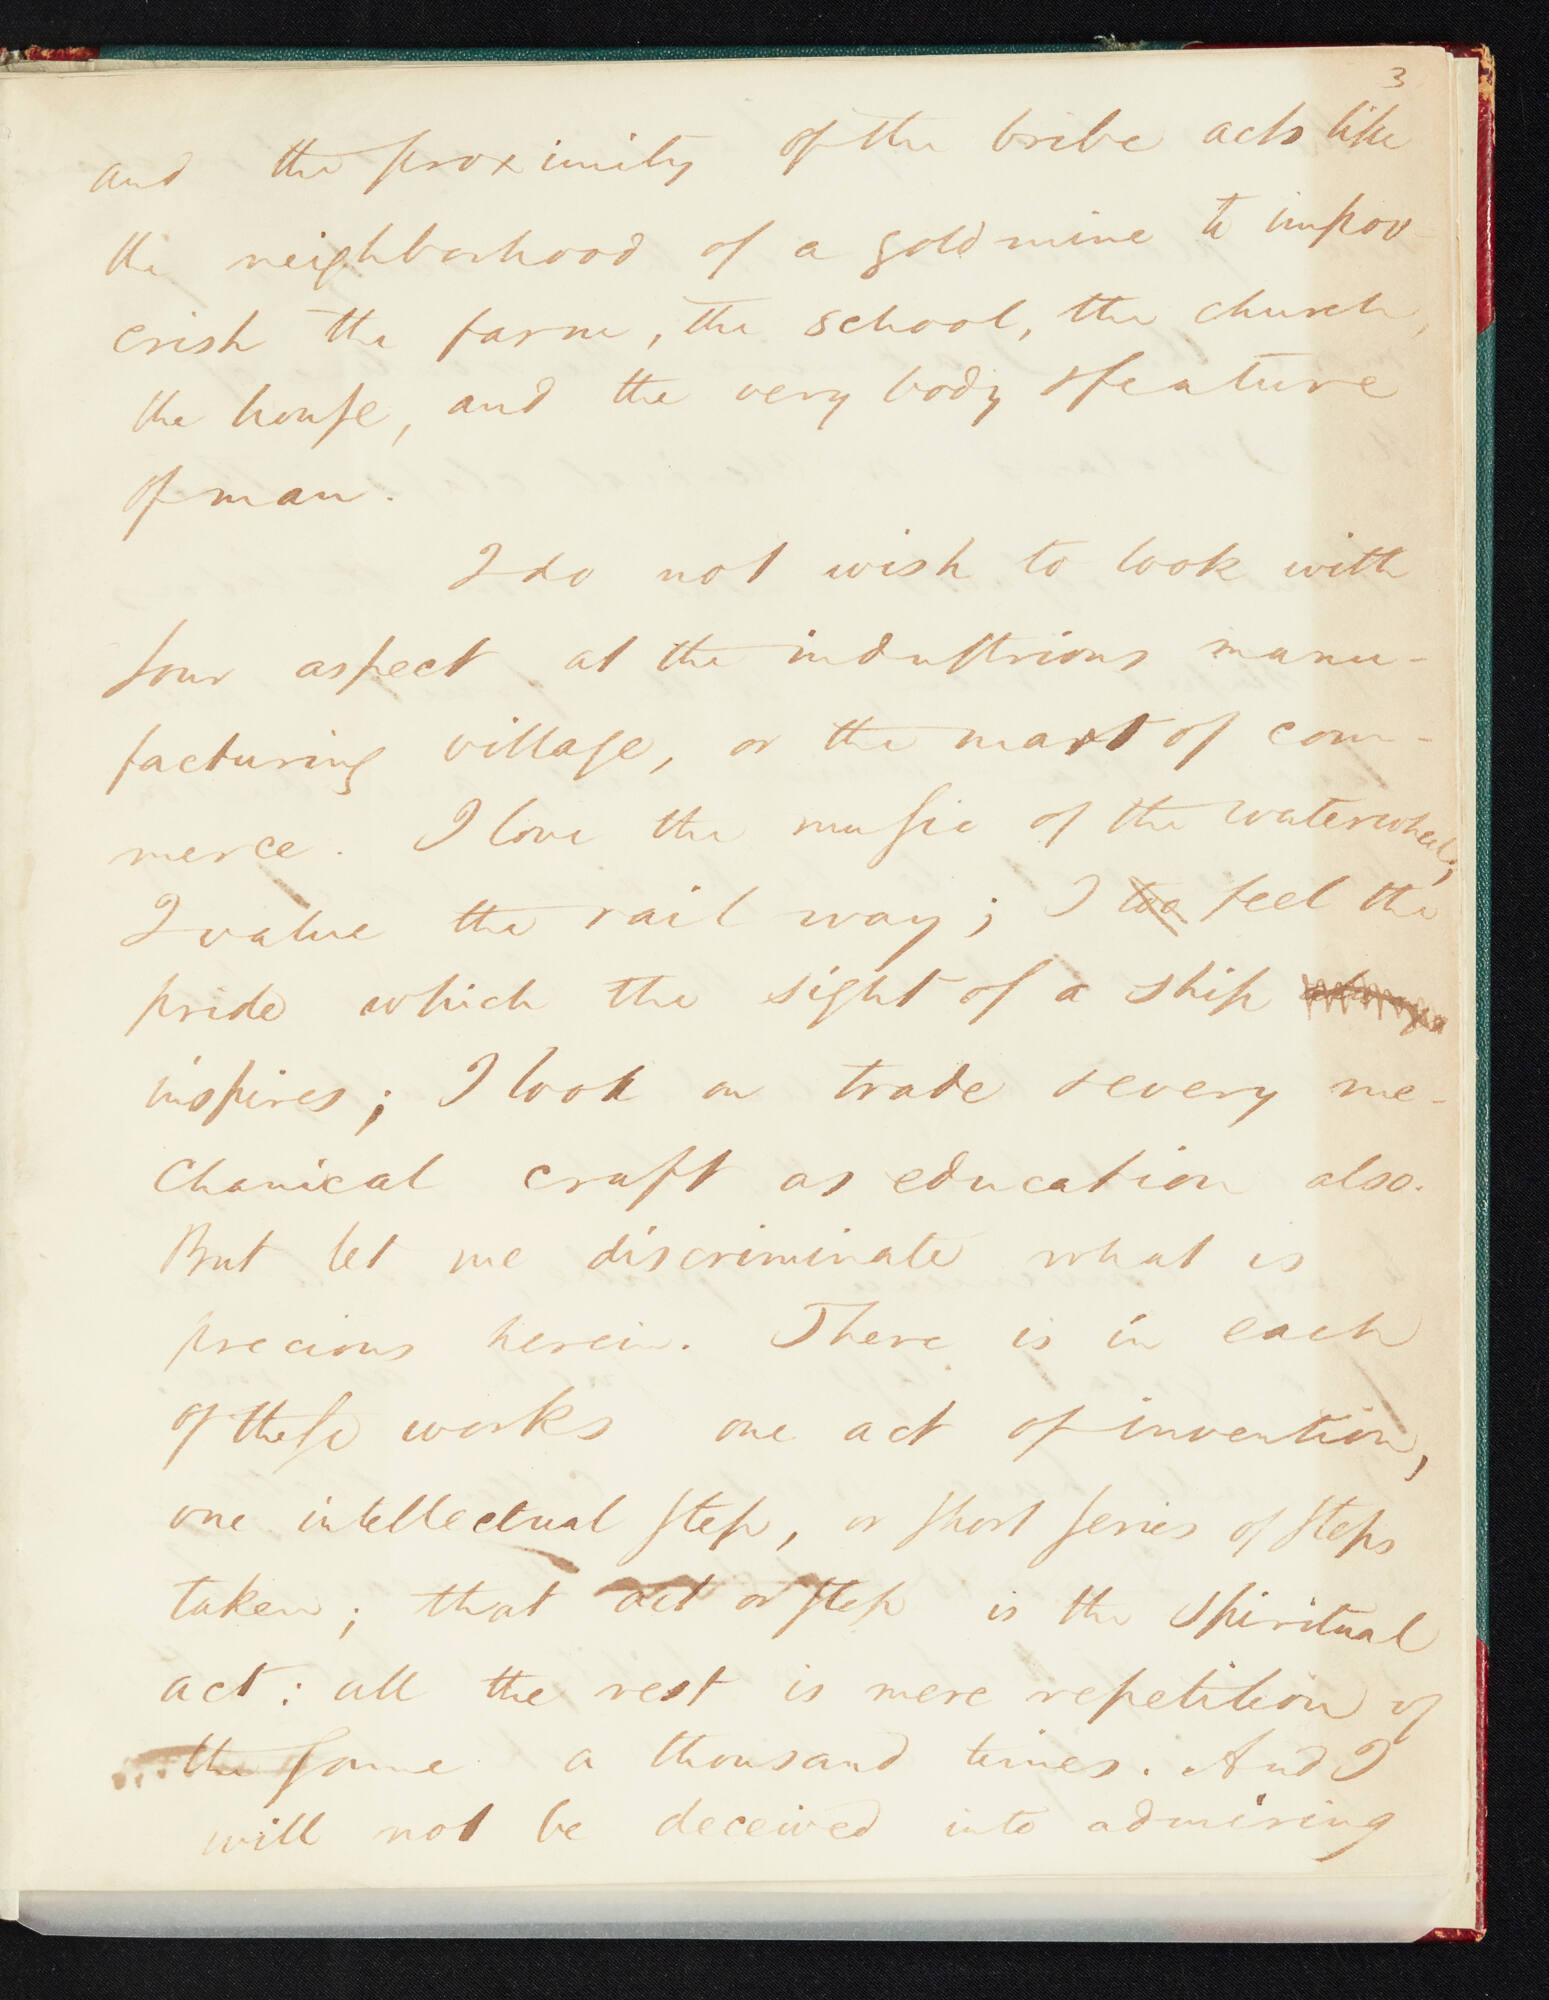 3
and the proximity of the bribe acts like
the neighborhood of a gold mine to impov-
erish the farm, the school, the church,
the house, and the very body & feature
of man.
I do not wish to look with
sour aspect at the industrious manu-
facturing village, or the mart of com-
merce. I love the music of the waterwheel;
I value the rail way; I too feel the
pride which the sight of a ship
inspires; I look on trade & every me-
chanical craft as education also.
But let me discriminate what is
precious herein. There is in each
of these works one act of invention,
one intellectual step, or short series of steps
taken; that act or step is the spiritual
act: all the rest is mere repetition of
the same a thousand times. And I
will not be deceived into admiring